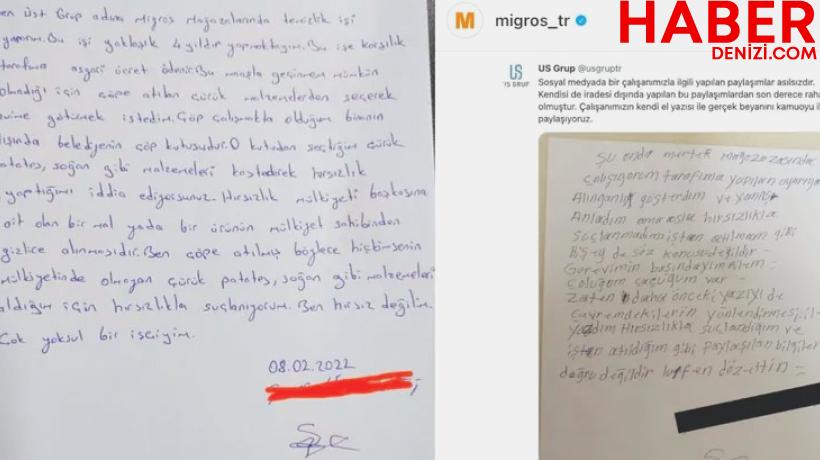 en Üst Grup adına Migros Mağazalarında temizlik işi
yapıyorum. Bu işi yaklaşık 4 yıldır yapmaktayım. Bu işe karşılık
tarafıma asgari ücret ödenir. Bu maaşla geçinmem mümkün
olmadığı için çöpe atılan çürük malzemelerden seçerek
evime götürmek istedim. Çöp çalışmakta olduğum birimin
dışında belediyenin çöp kutusudur. O kutudan seçtiğim çürük
patates, soğan gibi malzemeleri kastederek hırsızlık
yaptığımı iddia ediyorsunuz. Hırsızlık mülkiyeti başkasına
ait olan bir mal yada bir ürünün mülkiyet sahibinden
gizlice alınmasıdır. Ben çöpe atılmış böylece hiçbimsenin
mülkiyetinde olmayan çürük patates, soğan gibi malzemeleri
aldığım için hırsızlıkla suçlanıyorum. Ben hırsız değilim.
Çok yoksul bir işçiyim.
08.02.2022
M migros_tr
HABER
DENİZİ.COM
US
US GRUP
US Grup @usgruptr
Sosyal medyada bir çalışanımızla ilgili yapılan paylaşımlar asılsızdır.
Kendisi de iradesi dışında yapılan bu paylaşımlardan son derece raha
olmuştur. Çalışanımızın kendi el yazısı ile gerçek beyanını kamuoyu il
paylaşıyoruz.
Şu anda murtek mağazasında
Çalışıyorom tarafıma yapılan uyarıya
Alınganlık gösterdim ve yanlış
Anladım ama asla hırsızlıkla
Suçlanmadım iştan atılmam gibi
Bişey de söz konusu değildir -
Görevimin başındayım
çoluğum çucuğum var
Zaten daha önceki yazıyı de
çevremdekilerin yönlendirmesi il
yazdım Hırsızlıkla suçlandığım ve
iştan atıldığım gibi paylaşılan bilgiler
doğru değildir